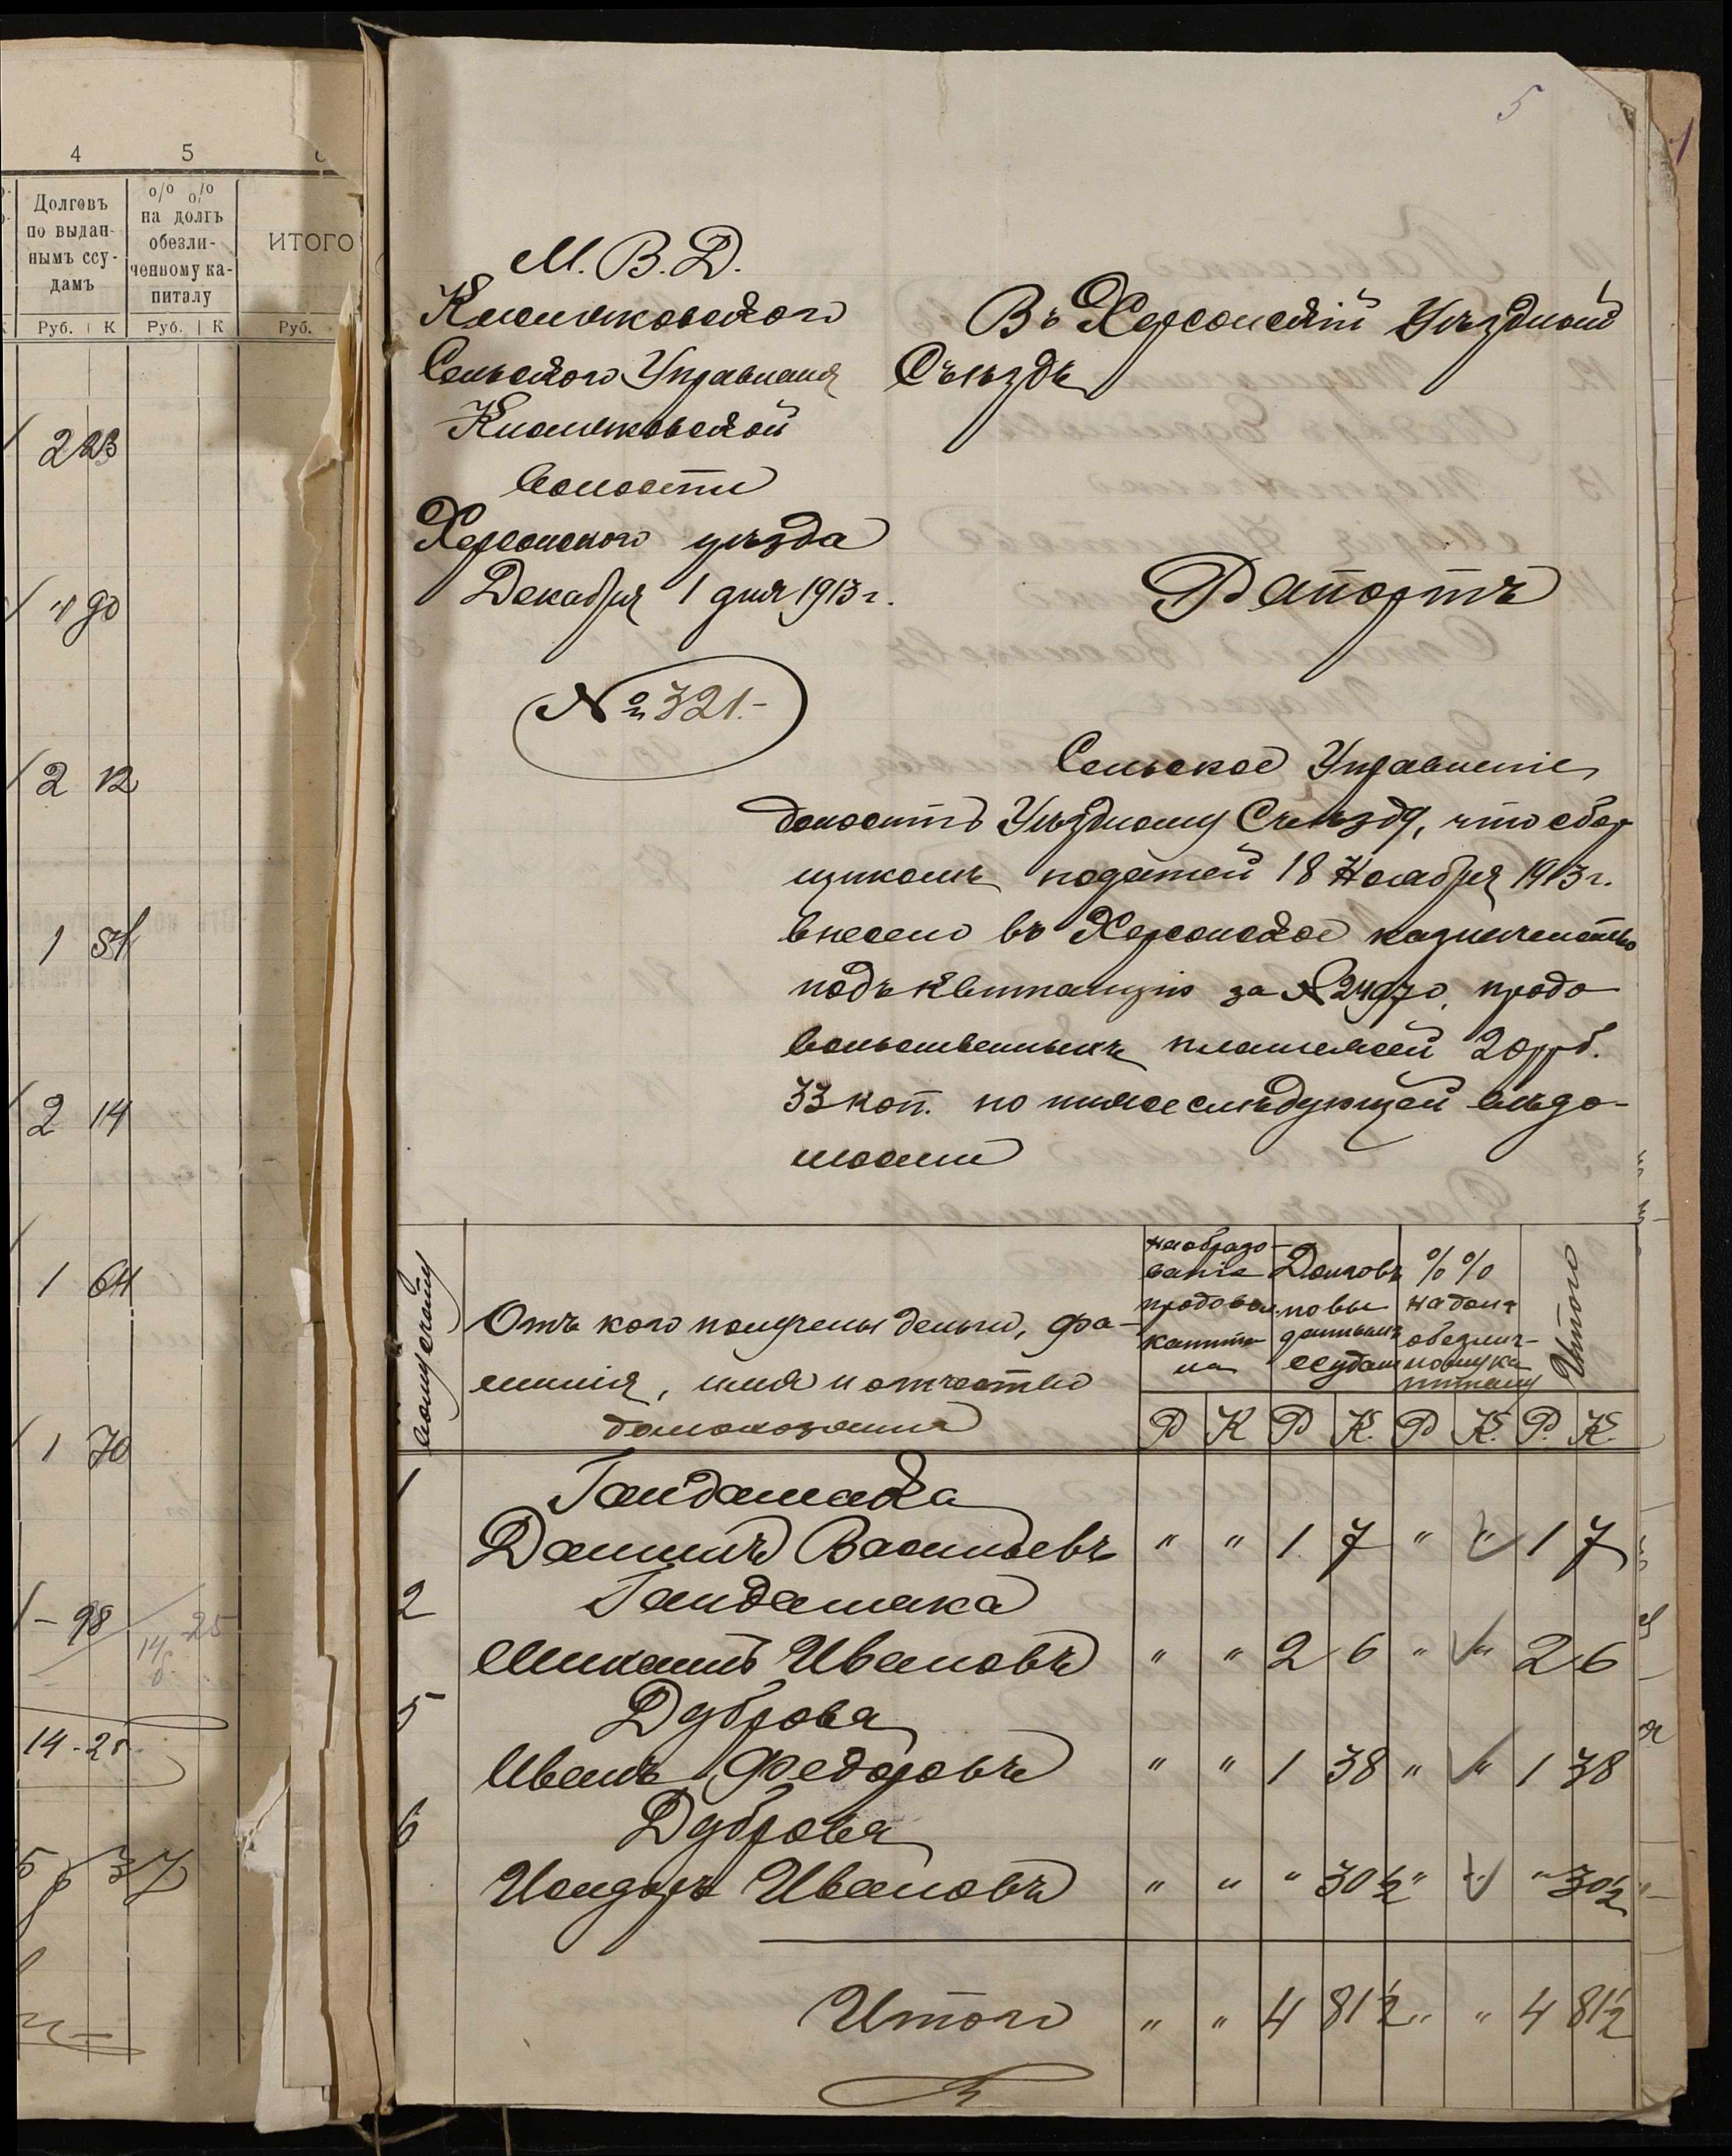 4 5
Долговъ
по выдан-
нымъ ссу-
дамъ
0/0 0/0
на долгъ
обезли-
ченному ка-
питалу
ИТОГО
Руб. К Руб. К Руб.
2 23
4 90
2 12
1 54
2 14
1 64
1 70
- 98
14-25
5 р 37
5
М. В. Д.
Кисляковскаго
Сельскаго Управленія
Кисляковской
Волости
Херсонскаго уѣзда
Декабря 1 дня 1913 г.
№ 321.-
Въ Херсонскій Уѣздный
Съѣздъ
Рапортъ
Сельское Управленіе
доноситъ Уѣздному Съѣзду, что сбор
щикомъ податей 18 Ноября 1913 г.
внесено въ Херсонское казначейство
подъ квитанцію за № 24970, продо
вольственныхъ платежей 20 руб.
33 коп. по нижеслѣдующей вѣдо-
мости
Отъ кого получены деньги, фа-
милія, имя и отчество
домохозяина
На образо-
ваніе
продовол.
капита
ла
Долговъ
по вы
даннымъ
ссудам
% %
на долг
обезлич-
ному ка
питалу
Итого
Р К Р К. Р К. Р. К.
1 Гайдамака
Даниилъ Васильевъ " " 1 7 " " 1 7
2 Гайдамака
Михаилъ Ивановъ " " 2 6 " " 2 6
5 Дуброва
Иванъ Федоровъ " " 1 38 " " 1 38
6 Дуброва
Исидоръ Ивановъ " " " 30 ½ " " " 30½
Итого " " 4 81½ " " 4 81½